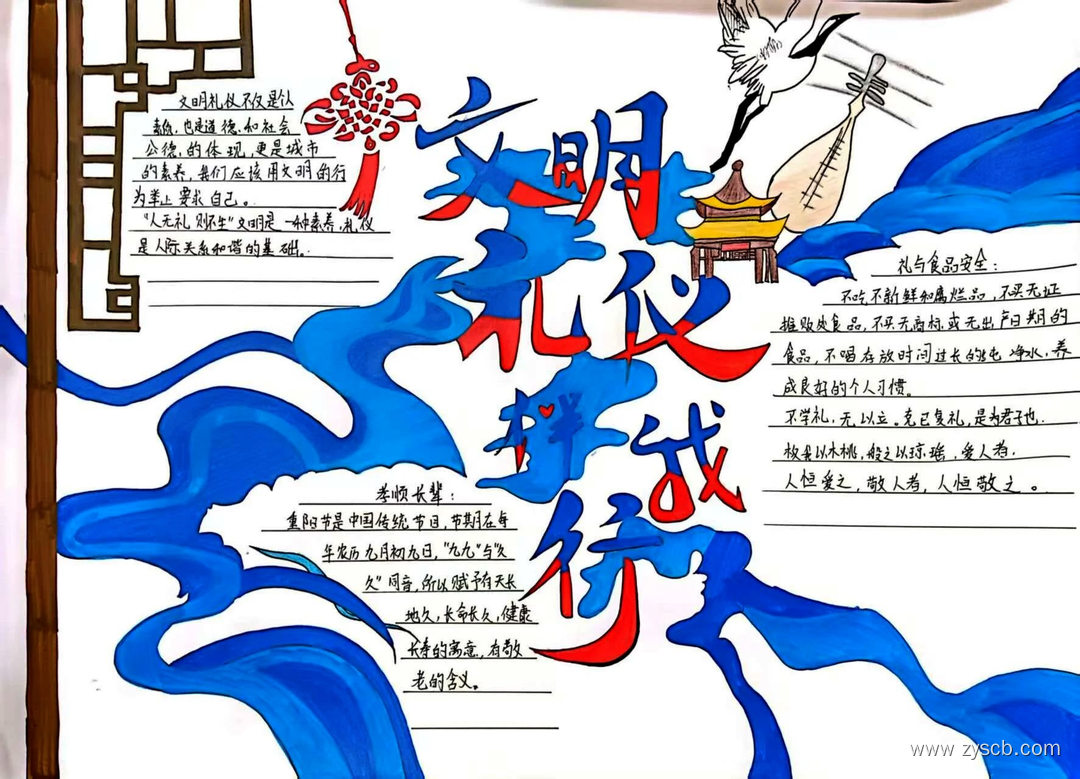 文明礼仪
伴我行
文明礼仪不仅是个人
素质,也是道德,和社会
公德,的体现,更是城市
的素养,我们应该用文明的行
为举止要求自己。
"人无礼则不生"文明是一种素养,礼仪
是人际关系和谐的基础。
礼与食品安全:
不吃不新鲜和腐烂品,不买无证
摊贩处食品,不买无商标或无出产日期的
食品,不喝存放时间过长的纯净水,养
成良好的个人习惯。
不学礼,无以立。克己复礼,是为君子也.
投我以木桃,报之以琼瑶,爱人者.
人恒爱之,敬人者,人恒敬之。
孝顺长辈:
重阳节是中国传统节日,节期在每
年农历九月初九日,"九九"与"久
久"同音,所以赋予有天长
地久,长命长久,健康
长寿的寓意,有敬
老的含义。
www.zyscb.com